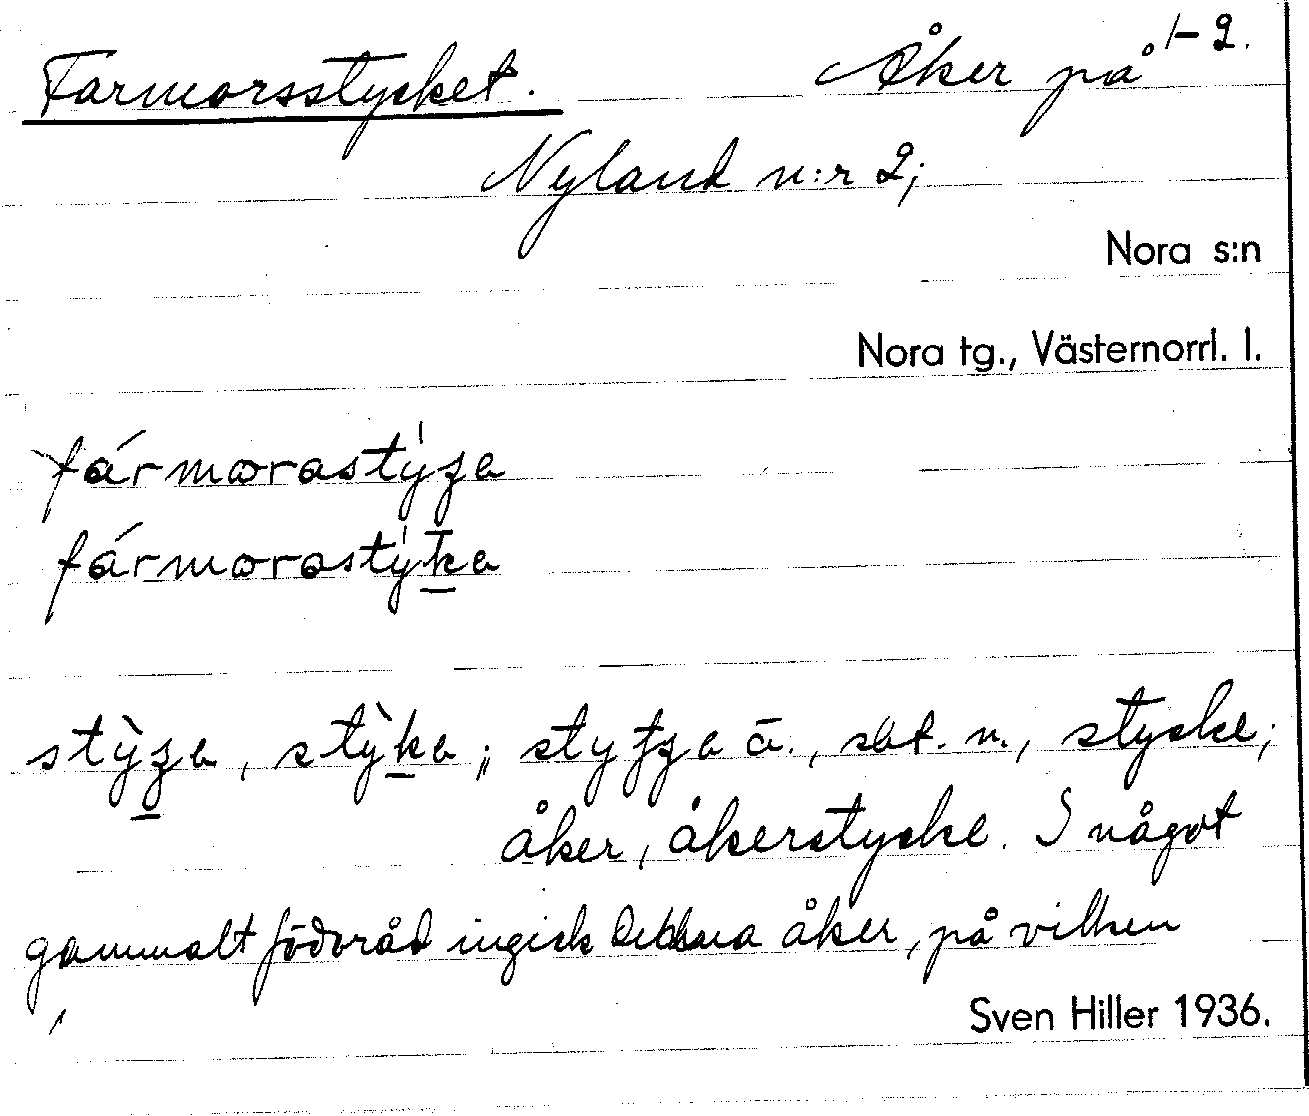 Farmorsstycket. Åker på 1-2.
Nyland n:r 2;
Nora s:n
Nora tg., Västernorrl. l.
fármorastýʒa
fármorastýka
stỳʒa, stỳka; styʈʒa ä., sbt. n., stycke;
åker, åkerstycke. I något
gammalt födoråd ingick denna åker, på vilken
Sven Hiller 1936.